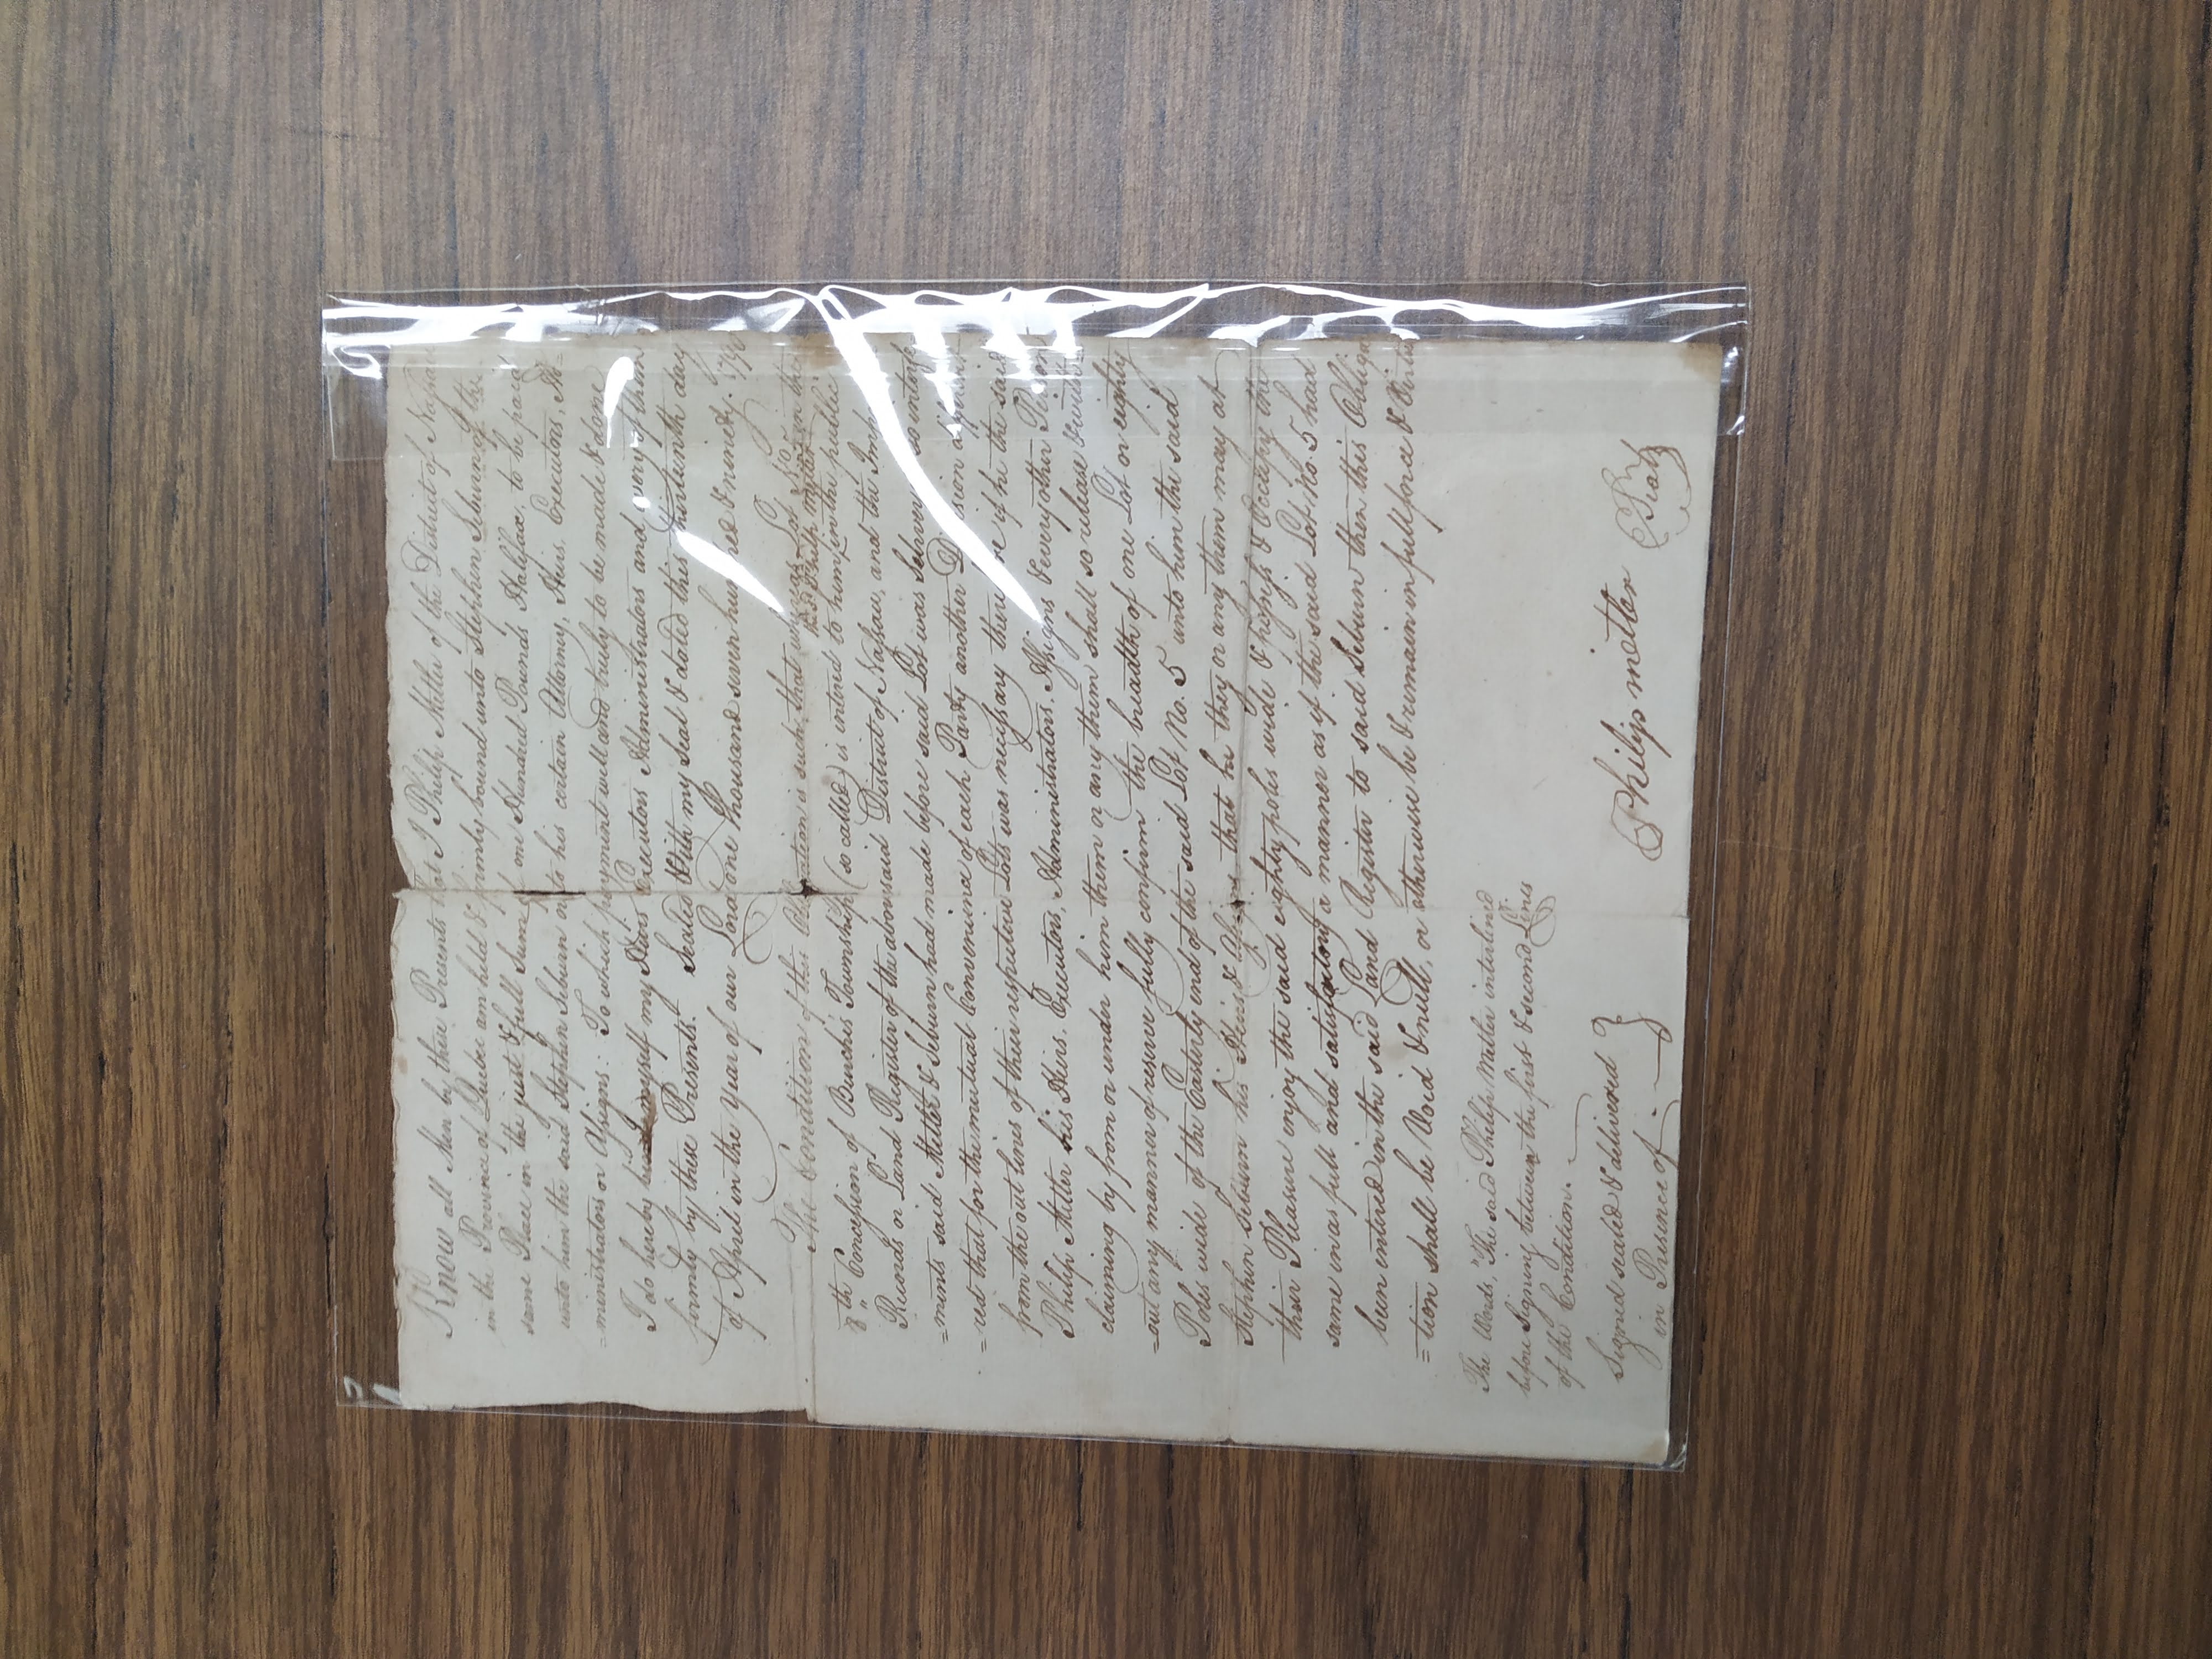 Know all Men by these Presents that I Philip Metler of the District of Nassau
in the Province of Quebec am held & firmly bound unto Stephen Seburn of the
same Place in the just & full Sum of one Hundred Pounds Halifax, to be paid
unto him the said Stephen Seburn or to his certain Attorney, Heirs, Executors, Ad=
=ministrators or Assigns: To which payment well and truly to be made & done
I do hereby bind myself my Heirs Executors Administrators and every of them
firmly by these Presents. Sealed With my Seal & dated this thirteenth day
of April in the Year of our Lord one thousand seven hundred & ninety. 1790
The Condition of this Obligation is such, that whereas Lot No. 5 in the
the sd. Philip Metler
8th Concession of Burch's Township (so called) is intered to him in the public
Records or Land Register of the abovesaid District of Nassau, and the Impr
=ments said Metler & Seburn had made before said Lot was Survey so interfe
=red that for the mutual Convenience of each Party another Division different
from the out lines of their respective Lots was necessary therefore if he the said
Philip Metler his Heirs, Executors, Administrators, Assigns & every other Person
claiming by from or under him them or any them shall so release & with=
=out any manner of reserve fully confirm the breadth of one Lot or eighty
Poles wide of the Easterly end of the said Lot No. 5 unto him the said
Stephen Seburn his Heirs & Assigns that he they or any them may at
their Pleasure enjoy the said eighty poles wide & possess & Occupy the
same in as full and satisfactory a manner as if the said Lot No. 5 had
been entered in the said Land Register to said Seburn then this Obliga
=tion shall be Void & null, or otherwise be & remain in full force & Virtue
The Words, "The said Philip Metler interlined
before Signing between the first & second Lines
of the Condition.
Signed sealed & delivered
in Presence of
Philip metler Seal